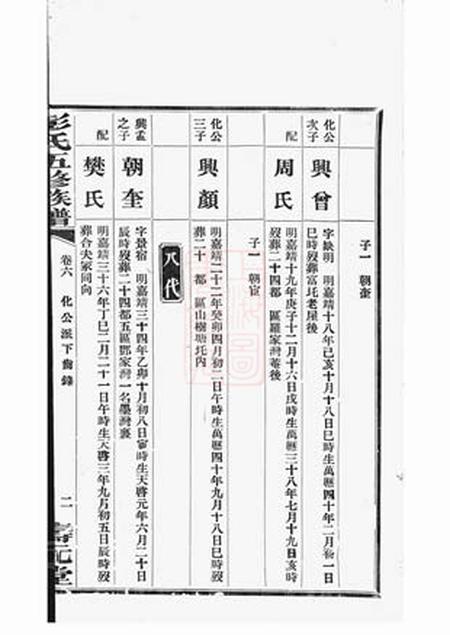 子一 朝奎
化公次子 興曾 字缺明 明嘉靖十八年己亥十月十八日巳時生萬曆四十年二月初一日
巳時歿葬富圫老屋後
配 周氏 明嘉靖十九年庚子十二月十六日戌時生萬曆三十八年七月十九亥時
歿葬二十四都 區羅家灣菴後
子一 朝宦
化公三子 興顏 明嘉靖二十二年癸卯四月初二日午時生萬曆四十年九月十八日巳時
葬二十 都 區山樹塘圫內
八代
興孟之子 朝奎 字景宿 明嘉靖三十四年乙卯十月初八日寅時生天啓元年六月二十日
辰時歿葬二十四都五區鄧家灣一名墨灣裏
配 樊氏 明嘉靖三十六年丁巳二月二十一日午時生天啓三年九月初五日辰時歿
葬合夫冢同向
彭氏五修族譜 卷六 化公派下齒錄 二 壽元堂